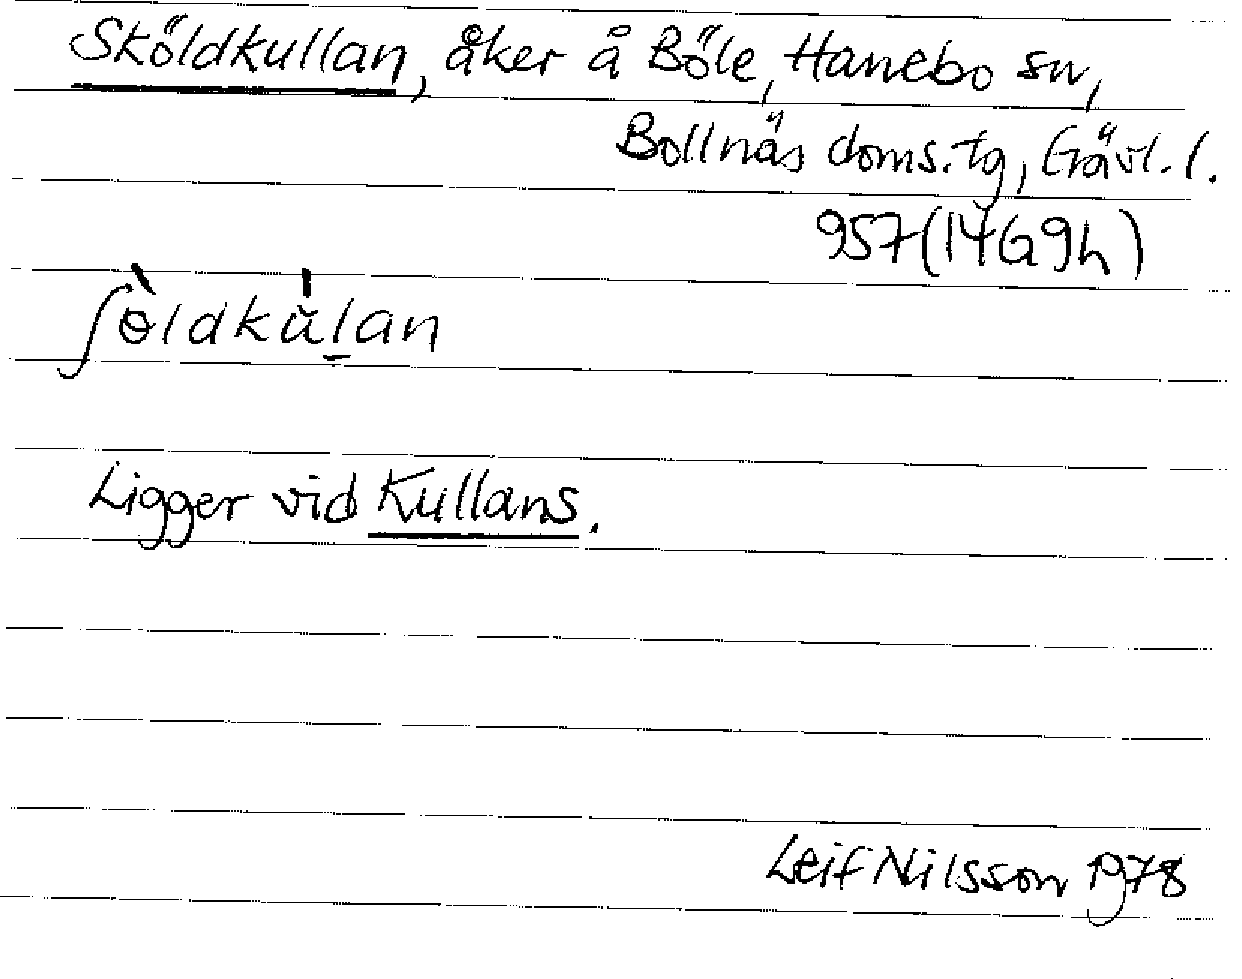 Sköldkullan, åker å Böle, Hanebo sn,
Bollnäs doms.tg, Gävl. l.
957(14G9h)
ʃɵ̀ldkùl̠an
Ligger vid Kullans.
Leif Nilsson 1978